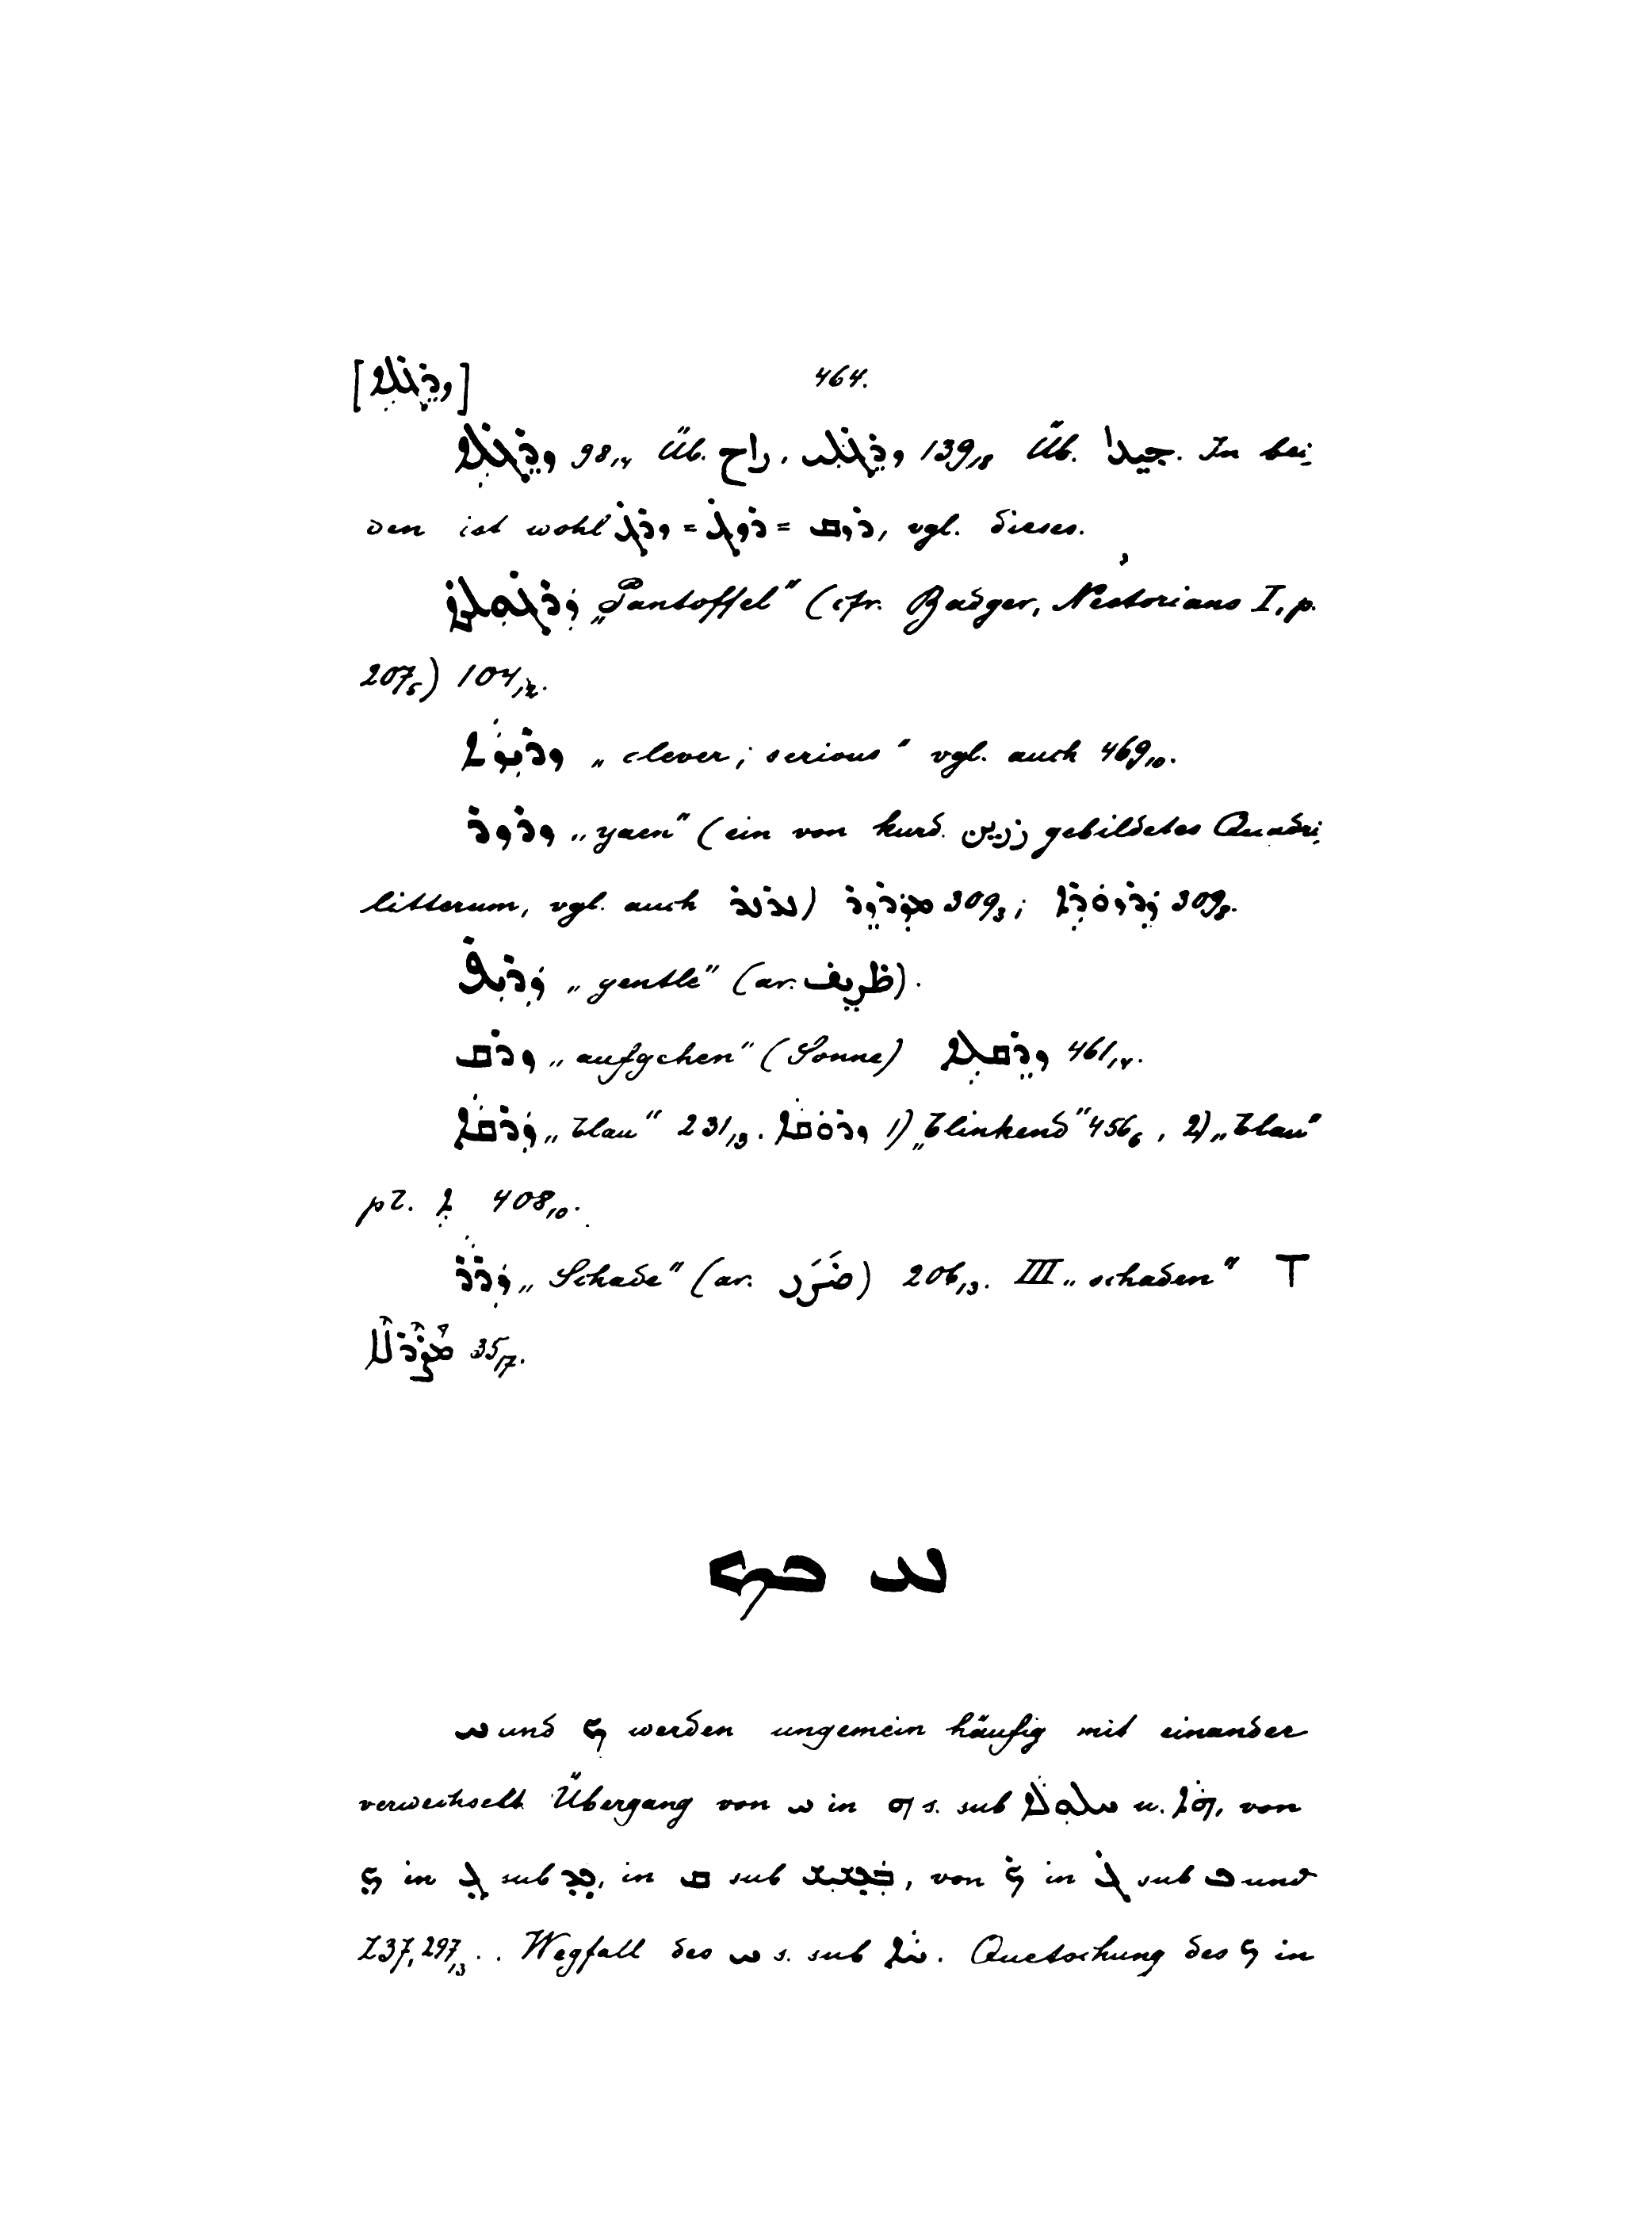 [ܙܪܓܠܗ] 464.
98,14 Üb. راح. 139,18 Üb. جيدا. In bei-
den ist wohl ܙܪܓ = ܪܙܓ = ܪܙܩ, vgl. dieses.
„Pantoffel“ (cfr. Badger, Nestorians I, p.
207,5) 104,12.
„clever; serious“ vgl. auch 469,10.
ܙܪܙܪ „zäen“ (ein von kurd. زرین gebildetes Quadri-
litterum, vgl. auch ܥܪܥܪ) ܡܙܪܙܪ 309,3; 309,8.
ܙܪܝܦ „gentle“ (ar. ظريف).
ܙܪܩ „aufgehen“ (Sonne) ܙܪܩܠܗ 461,14.
ܙܪܩܐ „blau“ 231,13. ܙܪܘܩܐ 1) „blinkend“ 456,6, 2) „blau“
pl. ܐ 408,10.
ܙܪܪ „Schade“ (ar. ضَرَر) 206,13. III „schaden“ T
35,17.
ܥܠ ܟܗ
ܚ und ܟ werden ungemein häufig mit einander
verwechselt. Übergang von ܚ in ܗ s. sub u. von
ܟ in ܓ sub in ܩ sub von ܟ in ܓ sub ܒ und
237, 297,13.. Wegfall des ܚ s. sub Quetschung des ܟ in